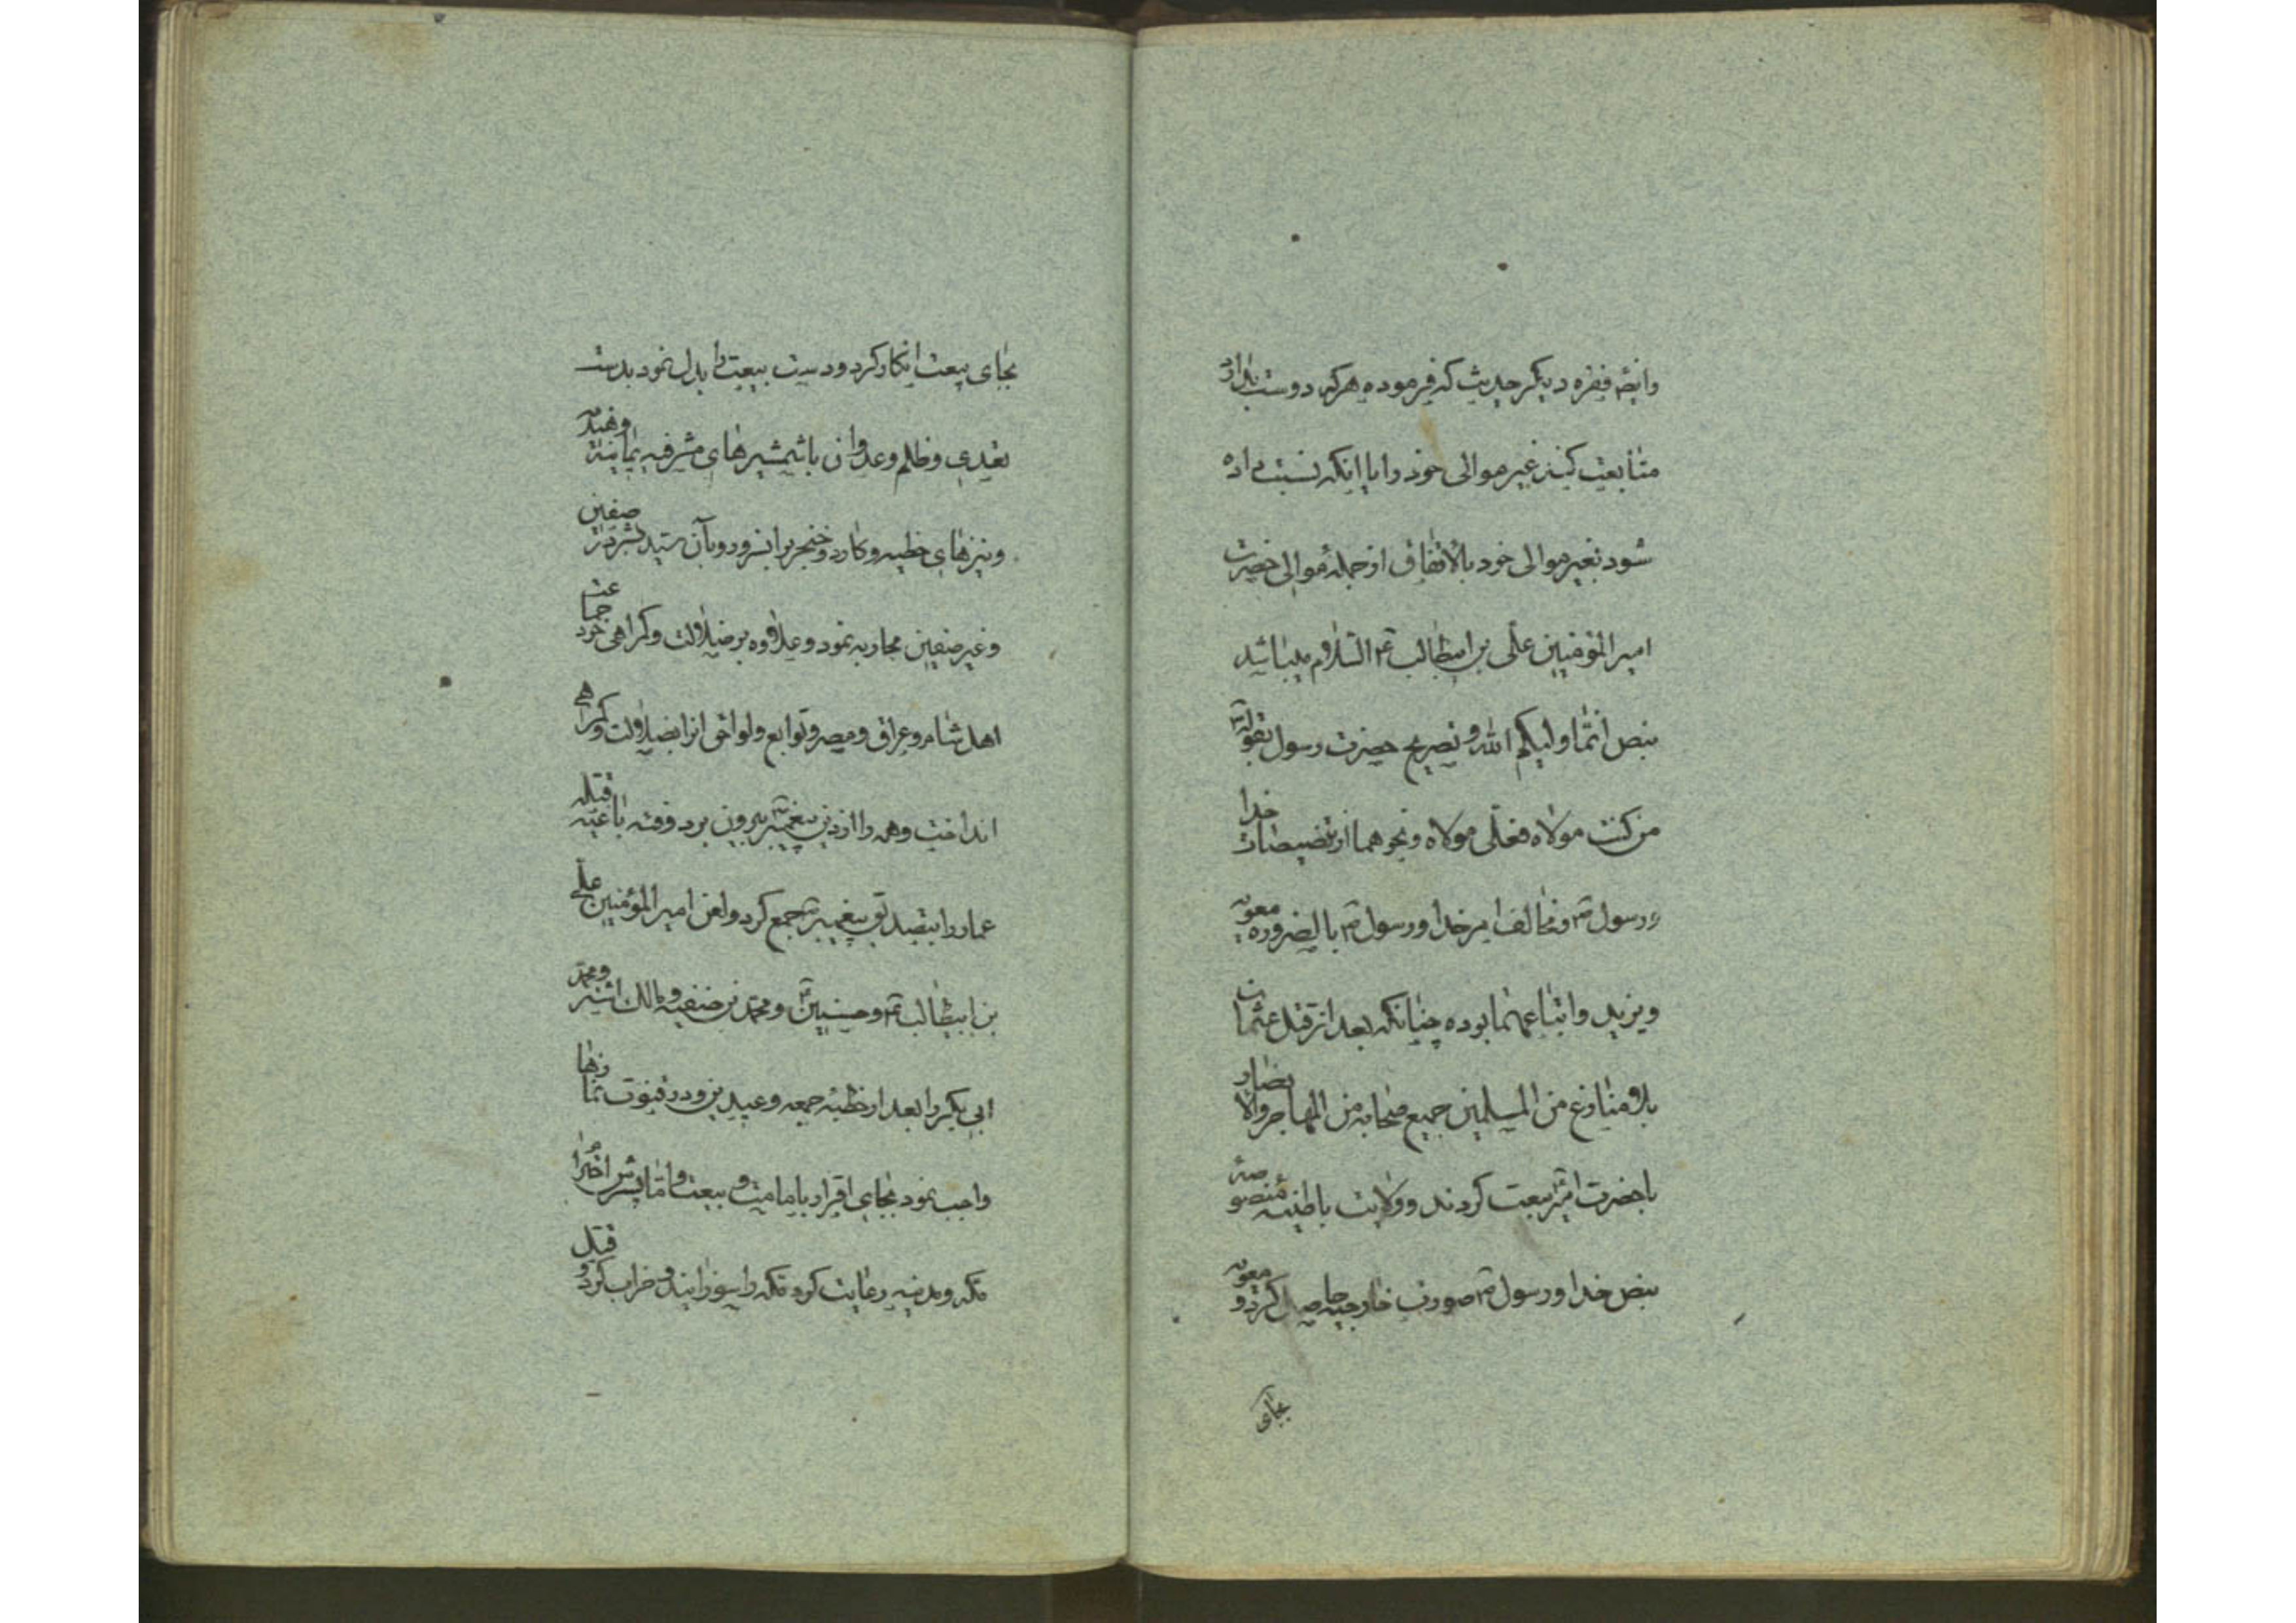 وایضه فقره دیگر حدیث که فرموده هرکه دوست بدارد
متابعت کیند غیر موالی خود را یا اینکه نسبت داده
شود بغیر موالی خود بالاتفاق از جمله موالی حضرت
امیر المؤمنین علی بن ابیطالب ع السلام میباشد
بنص انّما ولیکم الله و تصریح حضرت رسول بقوله
من کنت مولاه فعلی مولاه و نحو هما از تنصیصات خدا
و رسول ص و مخالف امر خدا و رسول ص بالضروره معویه
و یزید و اتباعهما بوده چنانکه بعد از قتل عثمان
بلا منازع من المسلمین جمیع صحابه من المهاجر والانصار
با حضرت امیر بیعت کردند و ولایت باطنیه منصوصه
بنص خدا و رسول ص صورت خارجیه حاصل کرد و معویه
بجای
بجای بیعت انکار کرد و دست بیعت را بدل نمود بدست
تعدی و ظلم و عدوان با شمشیرهای مشرفیه یمانیه وهندیه
و نیزهای خطیه و کارد و خنجر برابر و رو بآن سید بشر در صفین
و غیر صفین محاربه نمود و علاوه بر ضلالت و کمراهی خود جماعت
اهل شام و عراق و مصر و توابع و لواحق انرا بضلالت و کمراهی
انداخت و همه را از دین پیغمبر بیرون برد و فئه باغیه قتله
عمار را بتصدیق پیغمبر جمع کرد و لعن امیر المؤمنین علی
بن ابیطالب ع و حسنین و محمد بن حنفیه و مالک اشتر و محمد
ابی بکر را بعد از خطبه جمعه و عیدین و در قنوت نمازها
واجب نمود بجای اقرار بامامت و بیعت و امّا پسرش احترام
مکه و مدینه رعایت کرد مکه را سوزانید و خراب کرد و قتل